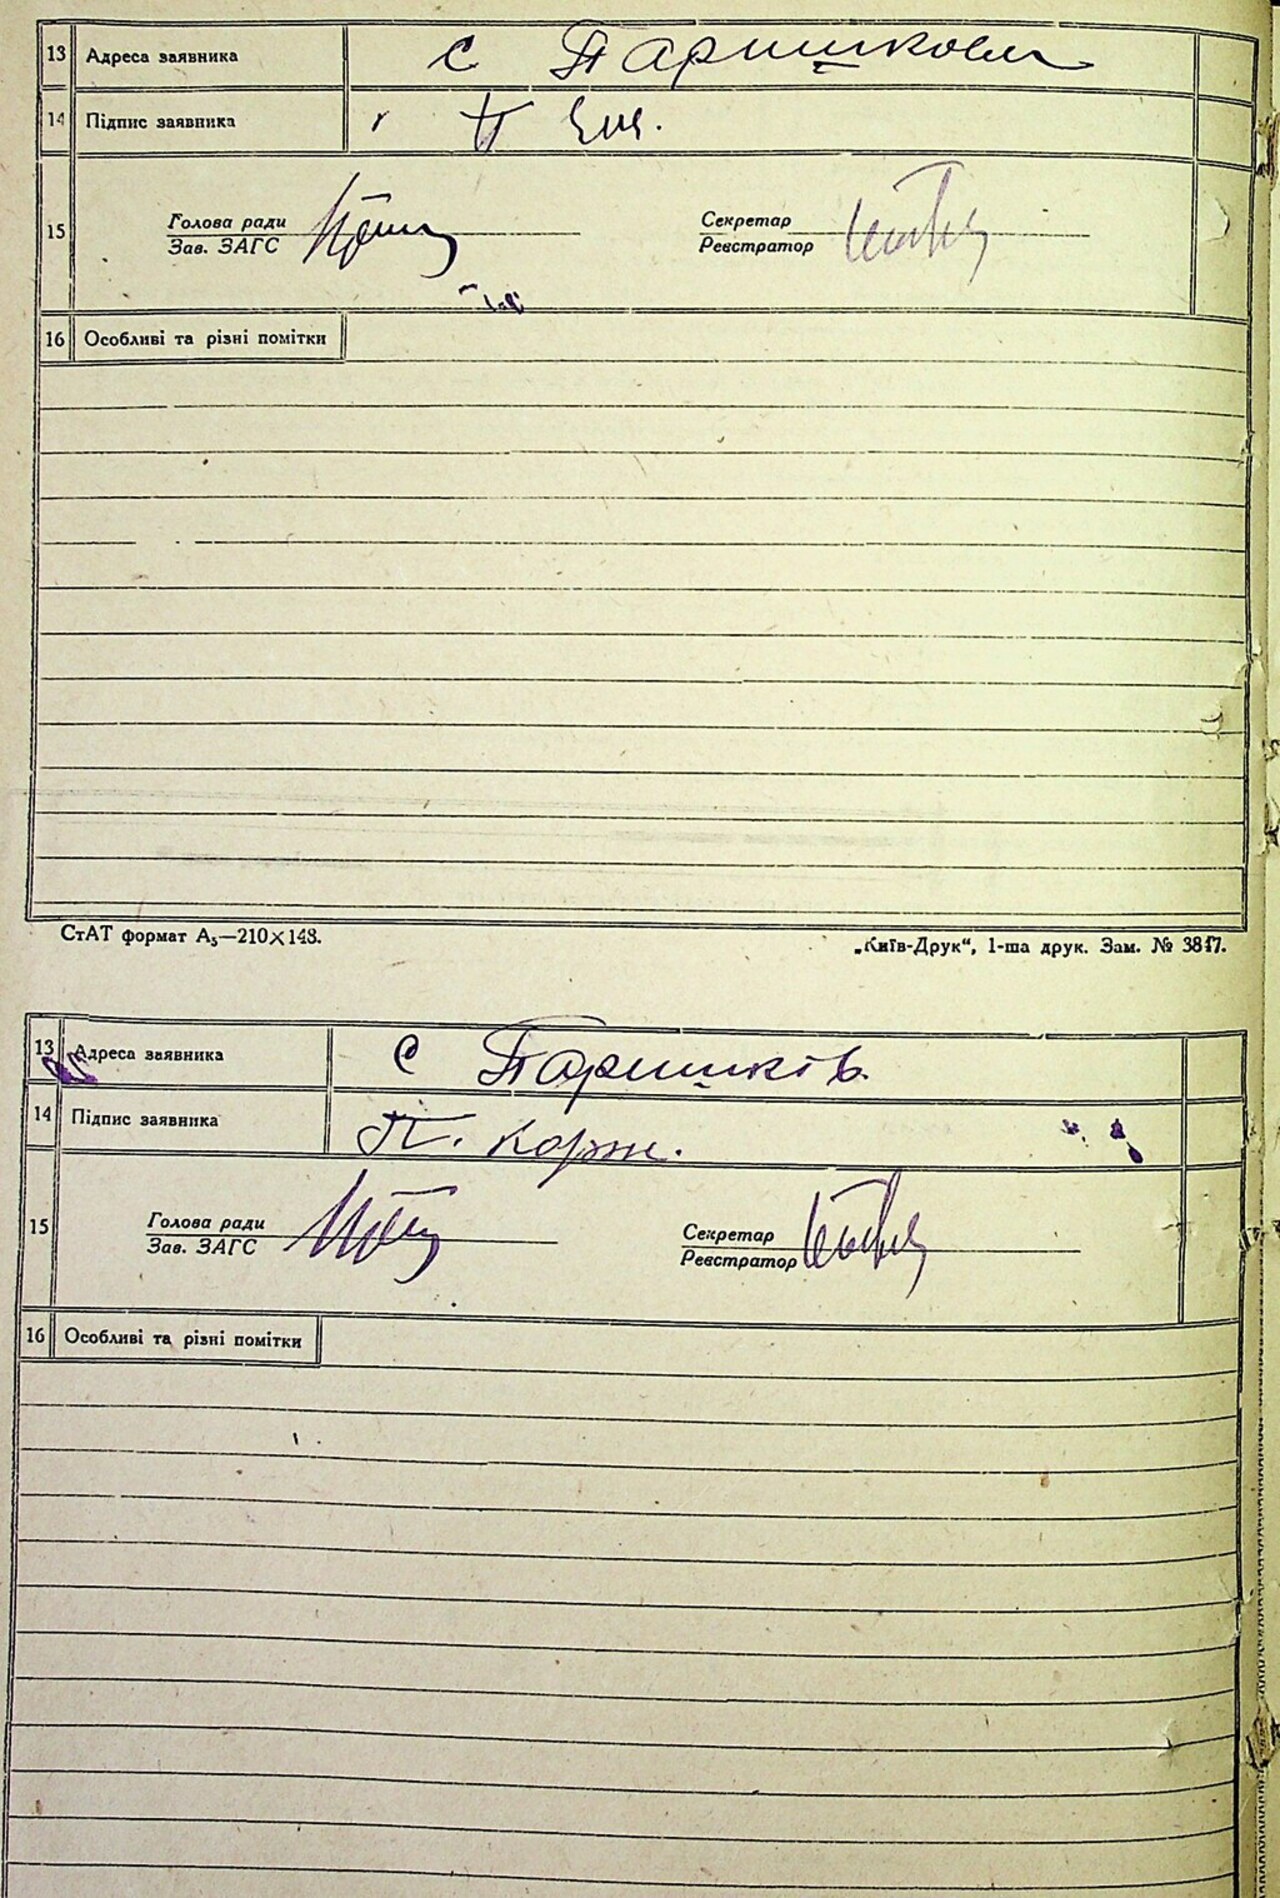 13 Адреса заявника с Паришкови
14 Підпис заявника П
Голова ради Секретар
15
Зав. ЗАГС Реєстратор
16 Особливі та різні помітки
СтАТ формат А₅—210×148. „Київ-Друк“, 1-ша друк. Зам. № 3847.
13 Адреса заявника с Паришків.
14 Підпис заявника П. Корж.
Голова ради Секретар
15
Зав. ЗАГС Реєстратор
16 Особливі та різні помітки